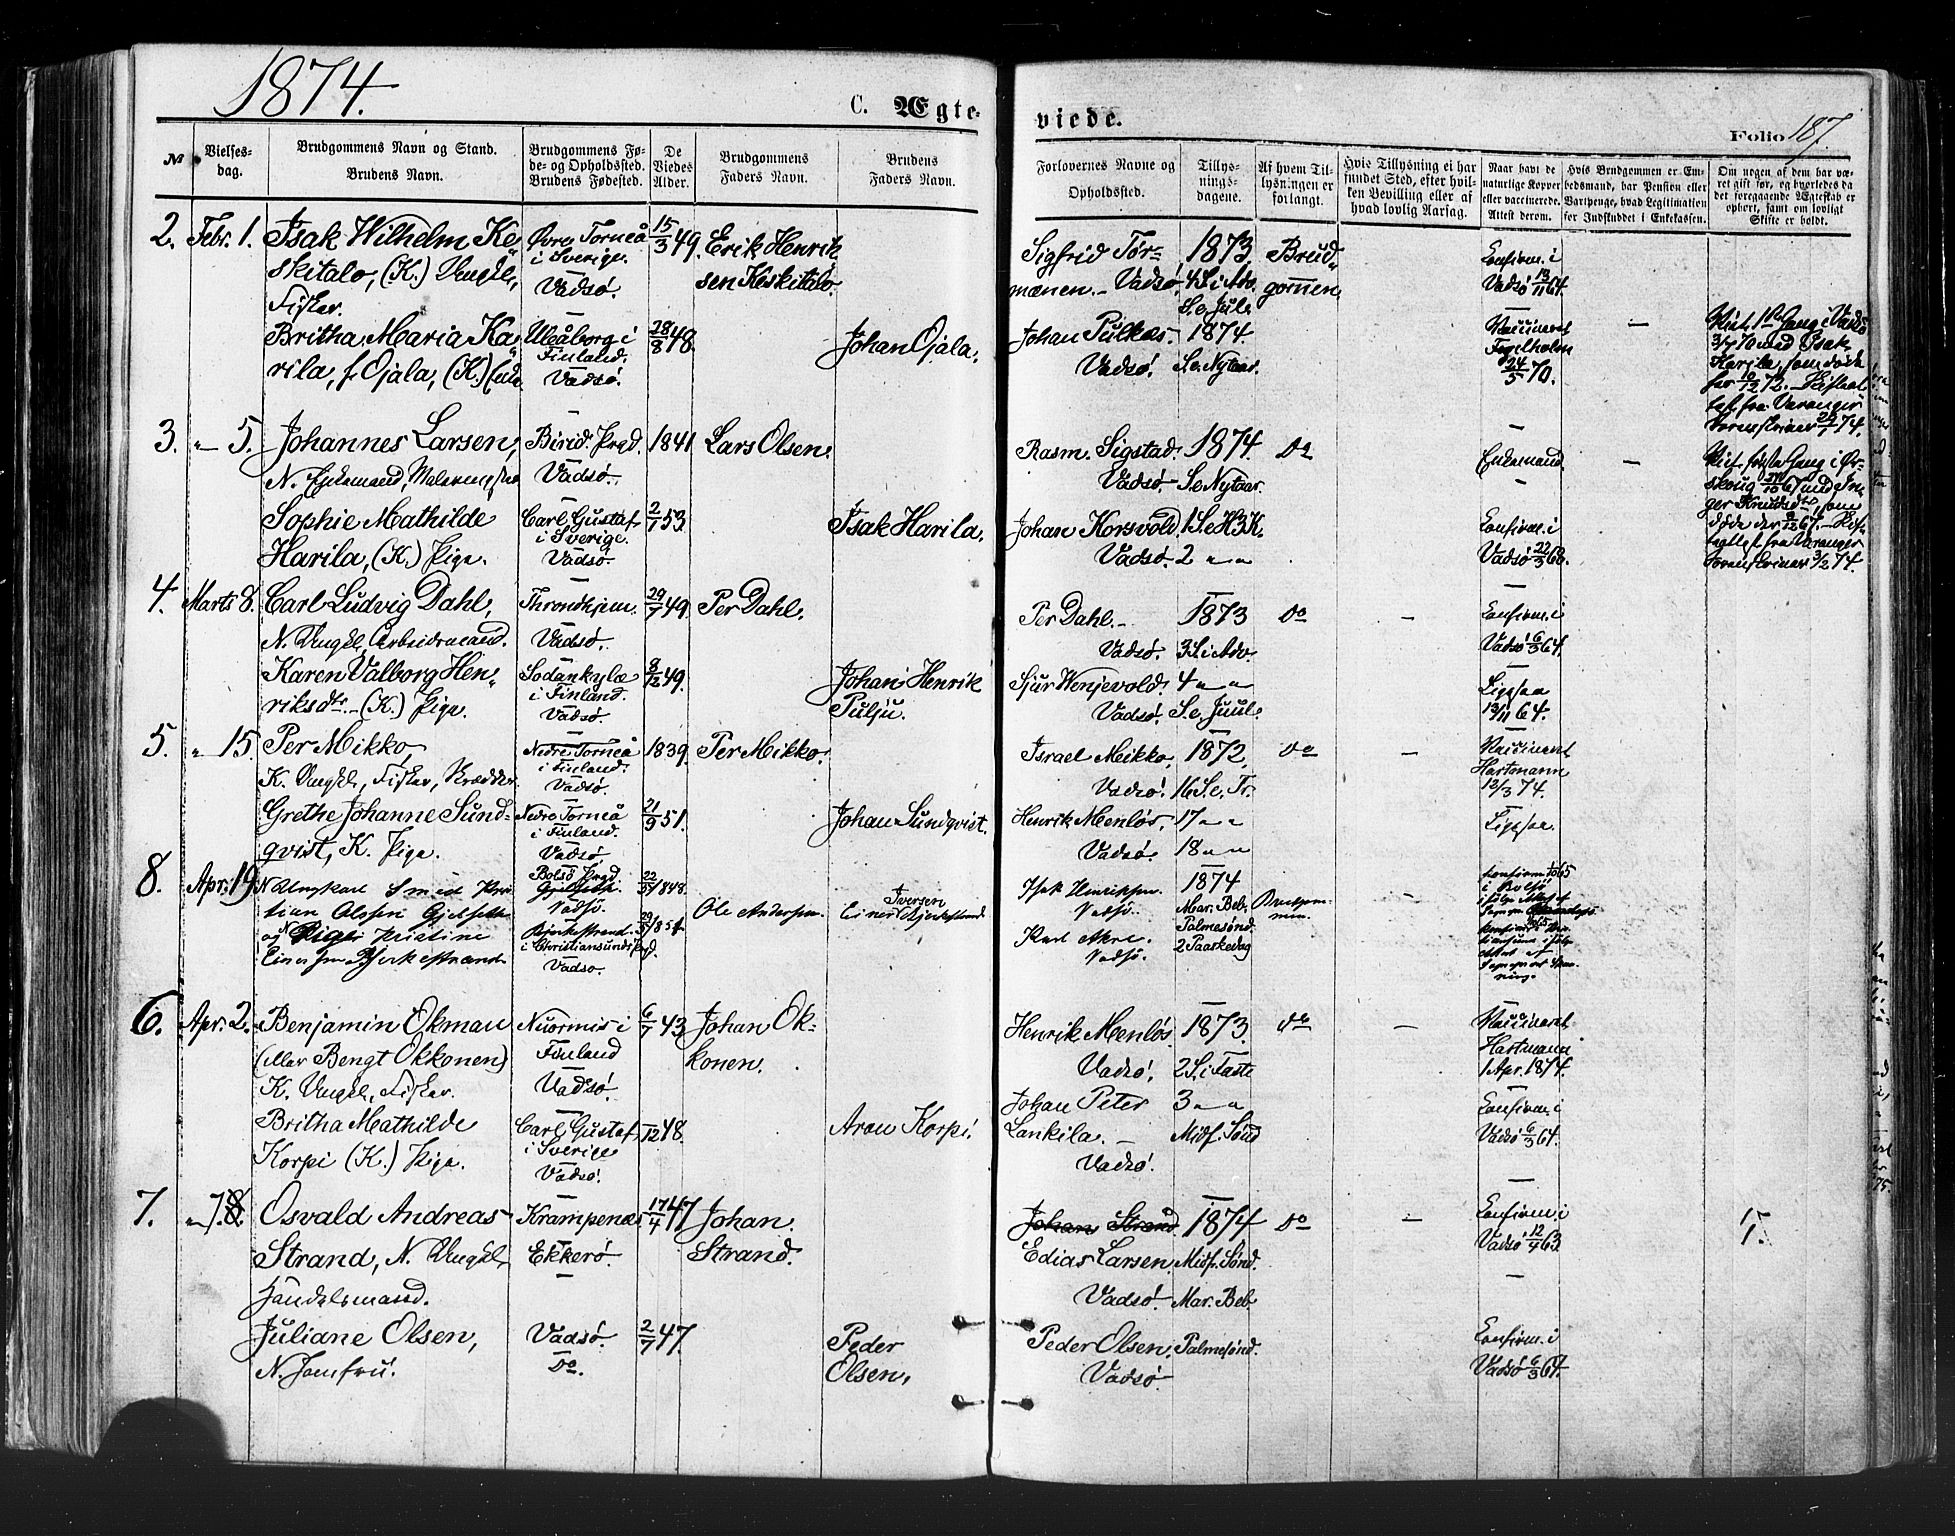 1874.
C. Ægte-
viede.
Folio 187.
№
Vielses-
dag.
Brudgommens Navn og Stand.
Brudens Navn.
Brudgommens Fø-
de- og Opholdssted.
Brudens Fødested.
De
Viedes
Alder.
Brudgommens
Faders Navn.
Brudens
Faders Navn.
Forlovernes Navne og
Opholdssted.
Tillys-
nings-
dagene.
Af hvem Til-
lysningen er
forlangt.
Hvis Tillysning ei har
fundet Sted, efter hvil-
ken Bevilling eller af
hvad lovlig Aarsag.
Naar havt de
naturlige Kopper
eller vaccinerede.
Attest derom.
Hvis Brudgommen er Em-
bedsmand, har Pension eller
Vartpenge, hvad Legitimation
for Indskuddet i Enkekassen.
Om nogen af dem har væ-
ret gift før, og hvorledes da
det foregaaende Ægteskab er
ophørt, samt om lovligt
Skifte er holdt.
2. Febr. 1. Isak Wilhelm Ke-
skitalo, (K.) Ungkl,
Fisker.
Øvre Torneå
i Sverige.
Vadsø.
15/3 49.
Erik Henrik
sen Keskitalo.
Sigfrid Tør-
mænen. - Vadsø.
1873
4 S. i Adv.
S. e. Jule
Brud-
gommen
Confirm. i
Vadsø 13/11 64.
Britha Maria Ka-
rila, f. Ojala, (K.) Enke
Uleåborg i
Finland.
Vadsø.
28/8 48.
Johan Ojala.
Johan Pulkas.
Vadsø.
1874.
S. e. Nytaar.
Vaccineret
24/5 70.
Vict 1ste Gang i Vadsø
3/4 70 med Isak
Karila, som døde
3. " 5. Johannes Larsen,
N. Enkemand, Malersvend
Birid Prgd.
Vadsø.
1841
Lars Olsen.
Rasm. Sigstad.
Vadsø.
1874.
S. e. Nytaar.
Do
Enkemand
Sophie Mathilde
Harila, (K.) Pige.
Carl Gustaf
i Sverige.
Vadsø.
2/1 53.
Isak Harila.
Johan Korsvold
Vadsø.
1 S. e. H. 3 K.
2 " "
Confirm. i
Vadsø 22/3 68.
4. Marts 8. Carl Ludvig Dahl,
N. Ungkl, Arbeidsmand.
Throndhjem.
Vadsø.
29/7 49.
Per Dahl.
Per Dahl. -
Vadsø.
1873
3 S. i Adv.
Do
Confirm. i
Vadsø 6/3 64.
Karen Valborg Hen-
riksdtr. - (K.) Pige.
Sodankylæ
i Finland.
Vadsø.
8/12 49.
Johan Henrik
Pulju.
Sjur Wenjevold.
Vadsø.
4 " "
S. e. Juul.
Ligesaa
13/11 64.
5. " 15. Per Mikko
K. Ungkl, Fisker, Skrædder
Nedre Torneå
i Finland.
Vadsø.
1839.
Per Mikko.
Israel Mikko.
Vadsø.
1872,
16 S. e. Tr.
Do
Vaccineret
Hartmann
12/3 74.
Grethe Johanne Sund-
qvist, K. Pige.
Nedre Torneå
i Finland.
Vadsø
21/9 51.
Johan Sundqvist.
Henrik Menløs,
Vadsø.
17 " "
18 " "
Ligesaa.
8. Apr. 19. N Ungkarl Smed Kri-
stian Olssen Gjelseth
Bolsø Prgd
Gjelseth.
Vadsø.
22/5 1848.
Ole Andersen.
Isak Henriksen
Vadsø.
1874
Mar. Beb.
Palmesønd
2 Paaskedag
Brudgom-
men
og N Pige Kristine
Einersen Bjerkestrand
Bjerkestrand
i Christiansunds Prgd.
Vadsø.
29/5 1851
Einer Iversen Bjerkestrand
Karl Akre.
Vadsø.
6. Apr. 2. Benjamin Økman
(eller Bengt Okkonen)
K. Ungkl, Fisker.
Nuormis i
Finland
Vadsø.
6/7 43
Johan Ok-
konen.
Henrik Menløs
Vadsø.
1873.
2 S. i Faste
Do
Vaccineret
Hartmann
1 Apr. 1874.
Britha Mathilde
Korpi (K.) Pige.
Carl Gustaf
i Sverige
Vadsø.
/12 48.
Aron Korpi.
Johan Peter
Lankila. -
Vadsø.
3 " "
Midf. Sønd
Confirm. i
Vadsø 6/3 64.
7. " 7. Osvald Andreas
Strand, N. Ungkl,
Handelsmand.
Krampenæs
Ekkerø.
17/4 47
Johan
Strand.
Johan Strand.
Edias Larsen.
Vadsø.
1874
Midf. Sønd.
Mar. Beb.
Do
Confirm. i
Vadsø 12/4 63
Juliane Olsen,
N. Jomfru.
Vadsø.
Do.
2/7 47.
Peder
Olsen.
Peder Olsen.
Vadsø.
Palmesønd.
Confirm. i
Vadsø 6/3 64.